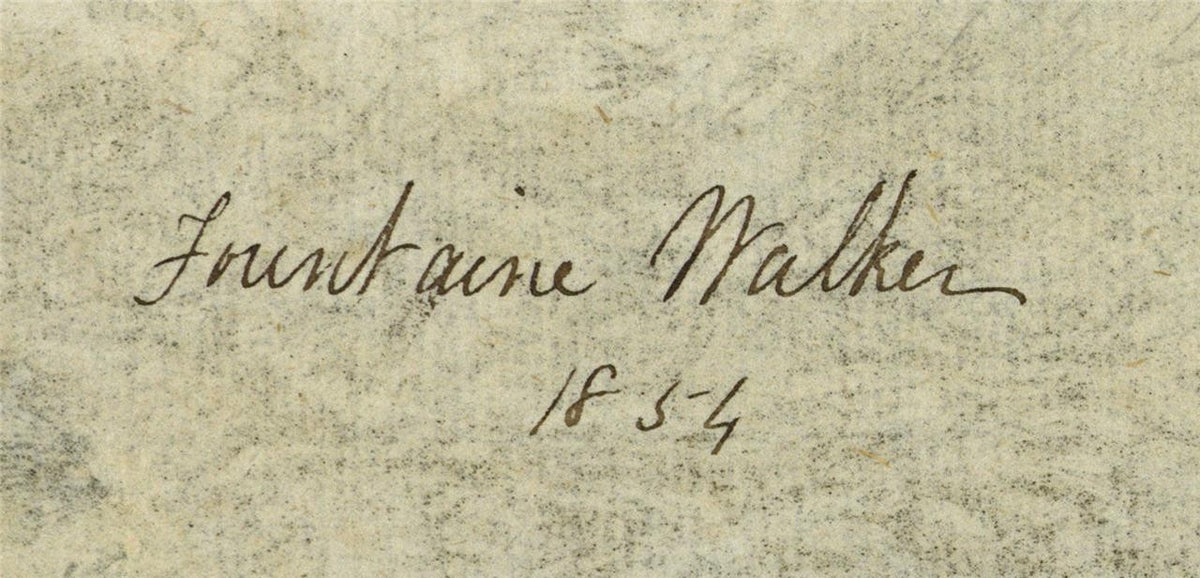 Fountaine Walker
1854